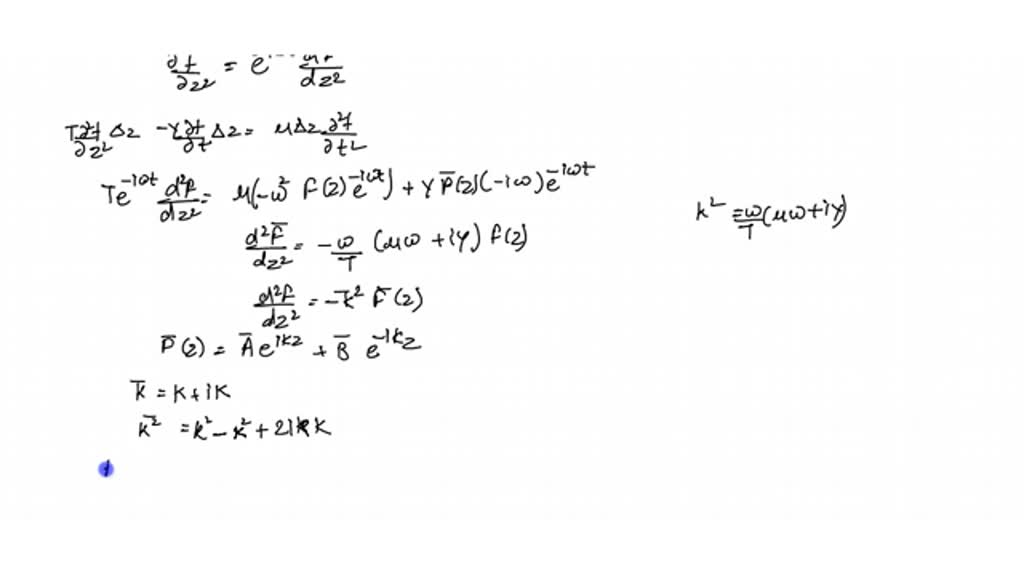 ∂f/∂z² = e d²F/dz²
T∂²f/∂z² Δz - γ∂f/∂t Δz = μΔz ∂²f/∂t²
Te^-iωt d²F/dz² = μ(-ω² F(z)e^-iωt) + γ F̄(z)(-iω)e^-iωt
k² = ω/T(μω+iγ)
d²F̄/dz² = -ω/T (μω + iγ) F(z)
d²F/dz² = -k̄² F̄(z)
F̄(z) = Āe^ikz + B̄ e^-ikz
k̄ = k + iK
k̄² = k² - K² + 2ikK